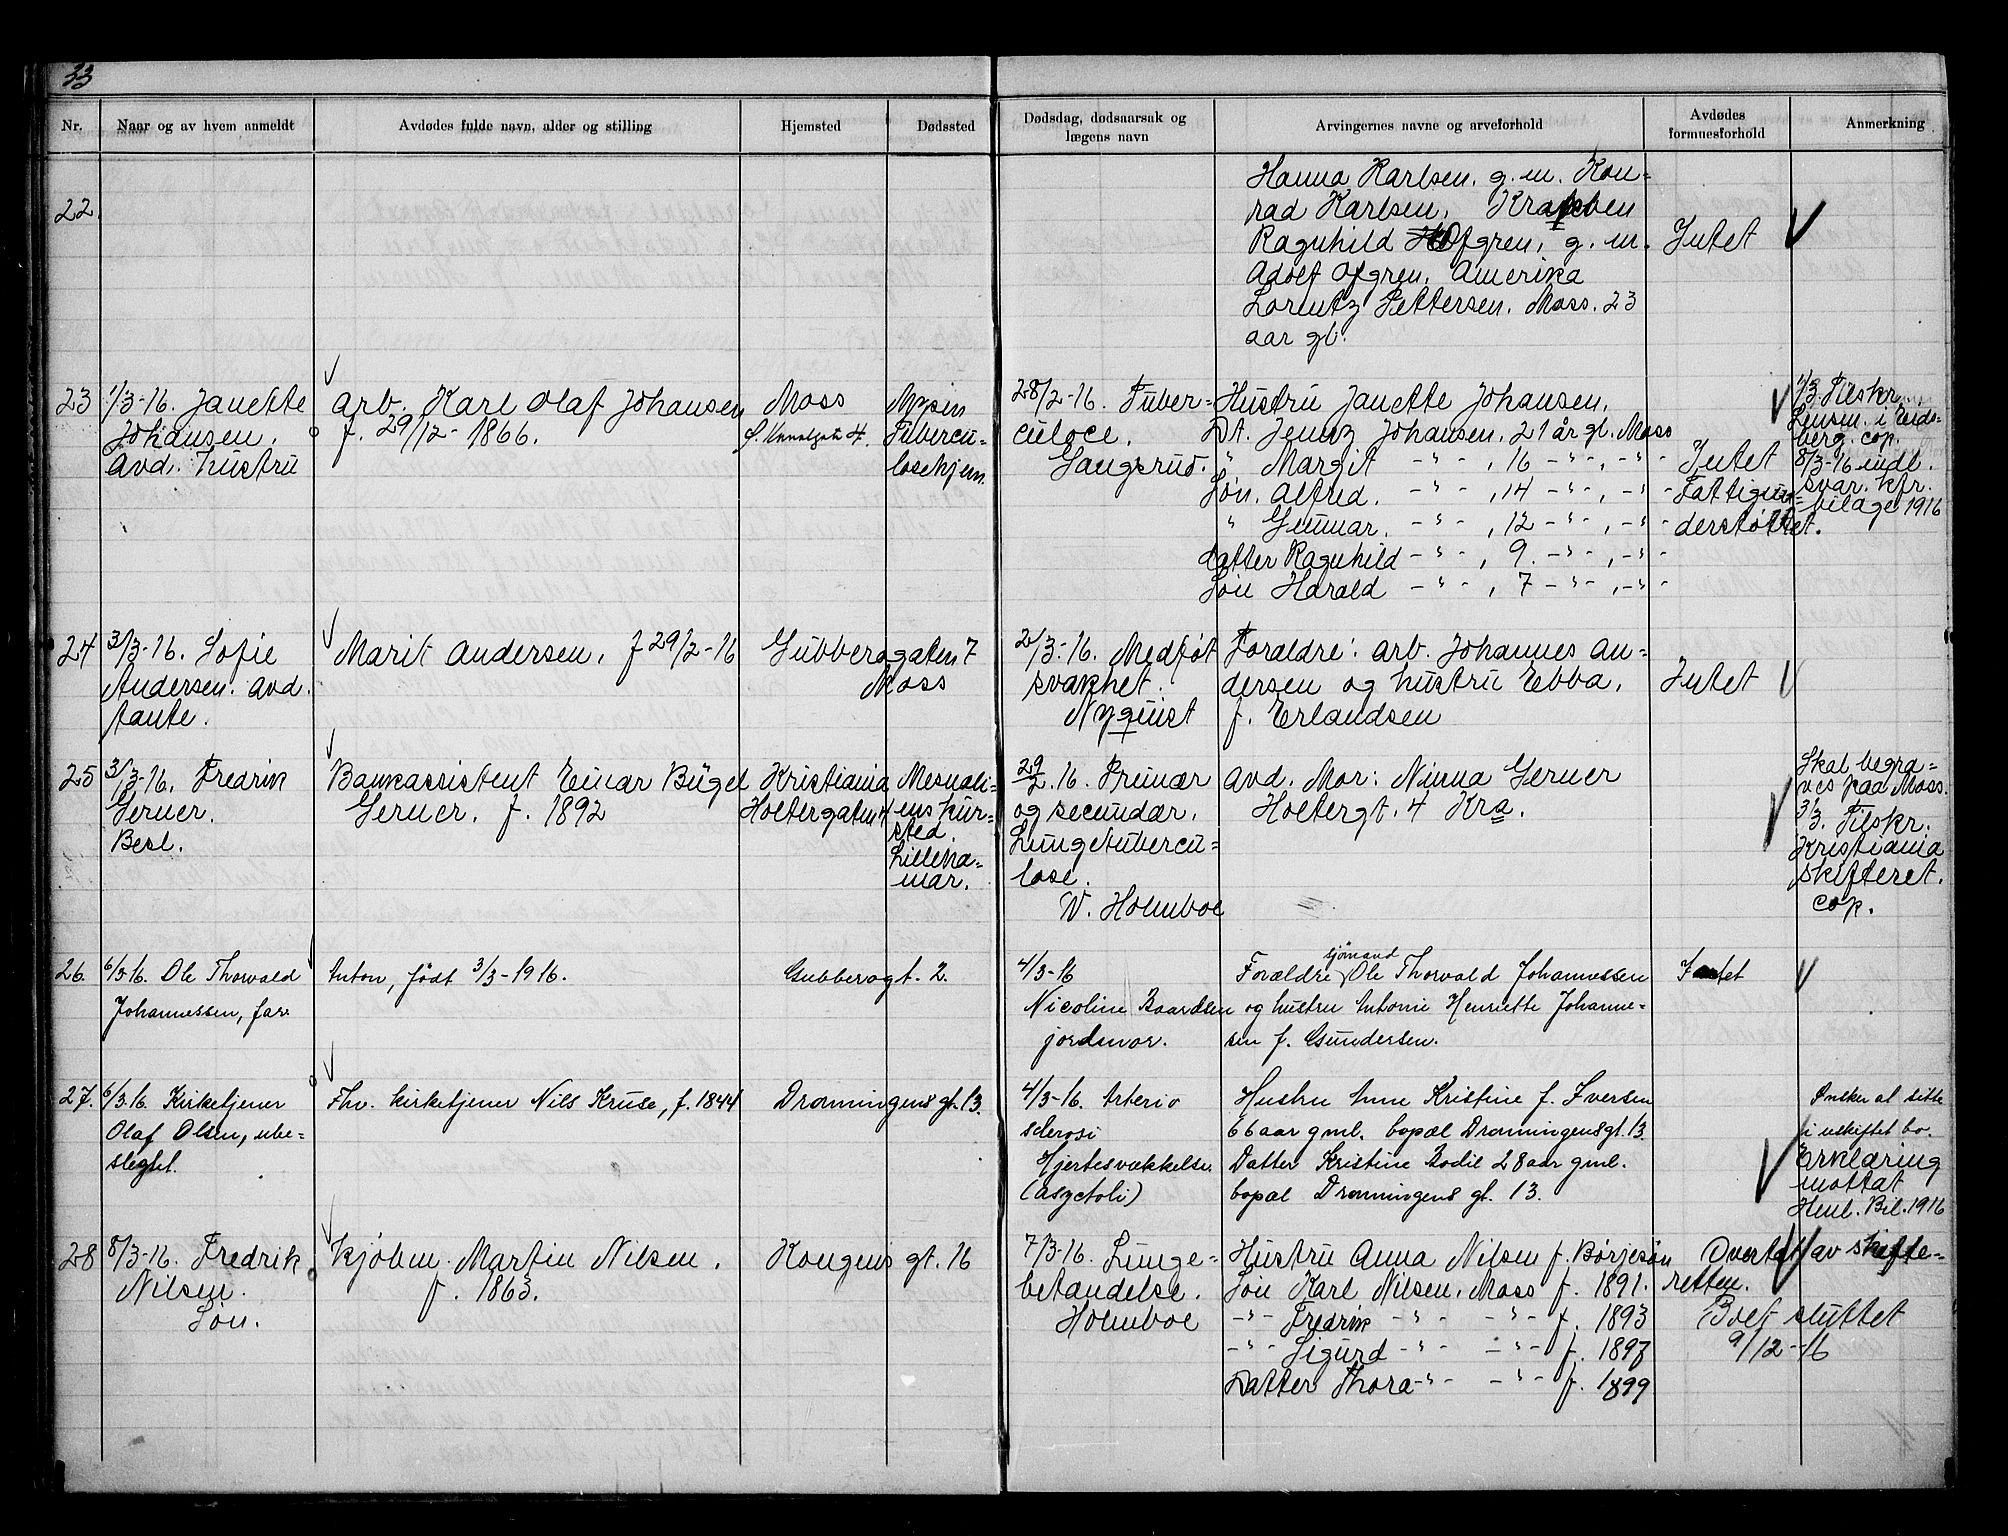 33
Nr.
Naar og av hvem anmeldt
Avdødes fulde navn, alder og stilling
Hjemsted
Dødssted
Dødsdag, dødsaarsak og
lægens navn
Arvingernes navne og arveforhold
Avdødes
formuesforhold
Anmerkning
22.
Hanna Karlsen. g. m. Kon-
rad Karlsen.
Ragnhild Ofgren, g. m.
Adolf Ofgren. Amerika
Lorentz Pettersen. Moss. 23
aar gl.
Intet
23
1/3-16. Janette
Johansen.
Avd. hustru
Arb. Karl Olaf Johansen
f. 29/12-1866.
Moss
Mysen
Tubercu-
losehjem
28/2-16. Tuber-
culoce.
Gangsrud.
Hustru Janette Johansen.
Dt. Jenny Johansen. 21 år gl. Moss
" Margit -"- , 16 -"-, -"-
Søn. Alfred. -"- , 14 -"-, -"-
" Gunnar. -"- , 12 -"-, -"-
datter Ragnhild -"- , 9. -"-, -"-
Søn Harald -"- , 7 -"-, -"-
Intet
Fattigun-
derstøttet.
1/3. Tilskr.
Lensm. i Eids-
berg. cop.
8/3-16 indl.
svar. kfr.
bilage 1916
24
3/3-16. Sofie
Andersen. avd.
tante.
Marit Andersen. f 29/2-16
Gubberogaten 7
Moss
2/3.-16. Medføt
svakhet.
Nyquist
Foraldre: arb. Johannes An-
dersen og hustru Ebba,
f. Erlandsen
Intet
25
3/3-16. Fredrik
Gerner.
Besl.
Bankassistent Einar Bügel
Gerner. f. 1892
Kristiania
Holtergaten 4
Mesnali-
ens kur-
sted.
Lilleha-
mar.
29/2.16. Primær
og secundær.
Lungetubercu-
lose.
N. Holmboe
avd. Mor: Ninna Gerner
Holtergt. 4 Kra.
Skal begra-
ves paa Moss.
3/3. Tilskr.
Kristiania
skifteret.
cop.
26.
6/3-16. Ole Thorvald
Johannessen, far.
Anton, født 3/3-1916.
Gubberogt. 2.
4/3-16
Nicoline Baardsen
jordmor.
sjömand
Forældre Ole Thorvald Johannessen
og hustru Antonie Henriette Johanne-
sen f. Gundersen.
Intet
27.
6/3.16. Kirketjener
Olaf Olsen, ube-
slegtet.
Fhv. kirketjener Nils Kruse, f. 1844
Dronningens gt. 13.
4/3-16. Arterio
sclerosi
Hjertesvækkelse.
(asyctoli)
Hustru Anne Kristine f. Iversen
66 aar gml. bopæl Dronningensgt. 13.
Datter Kristine Bodil 28 aar gml.
bopæl Dronningens gt. 13.
Ønsker at sitte
i uskiftet bo.
Erklæring
mottat
Henl. Bil. 1916
28
8/3-16. Fredrik
Nilsen.
Søn.
Kjøbm. Martin Nilsen.
f. 1863.
Kongens gt. 16
7/3-16. Lunge-
betandelse.
Holmboe
Hustru Anna Nilsen f. Børjesøn
Søn Karl Nilsen. Moss f. 1891.
-"- Fredrik -"- -"- f. 1893
-"- Sigurd -"- -"- f. 1897
Datter Thora -"- -"- f. 1899
Overtat av skifte-
retten.
Boet sluttet
9/12-16